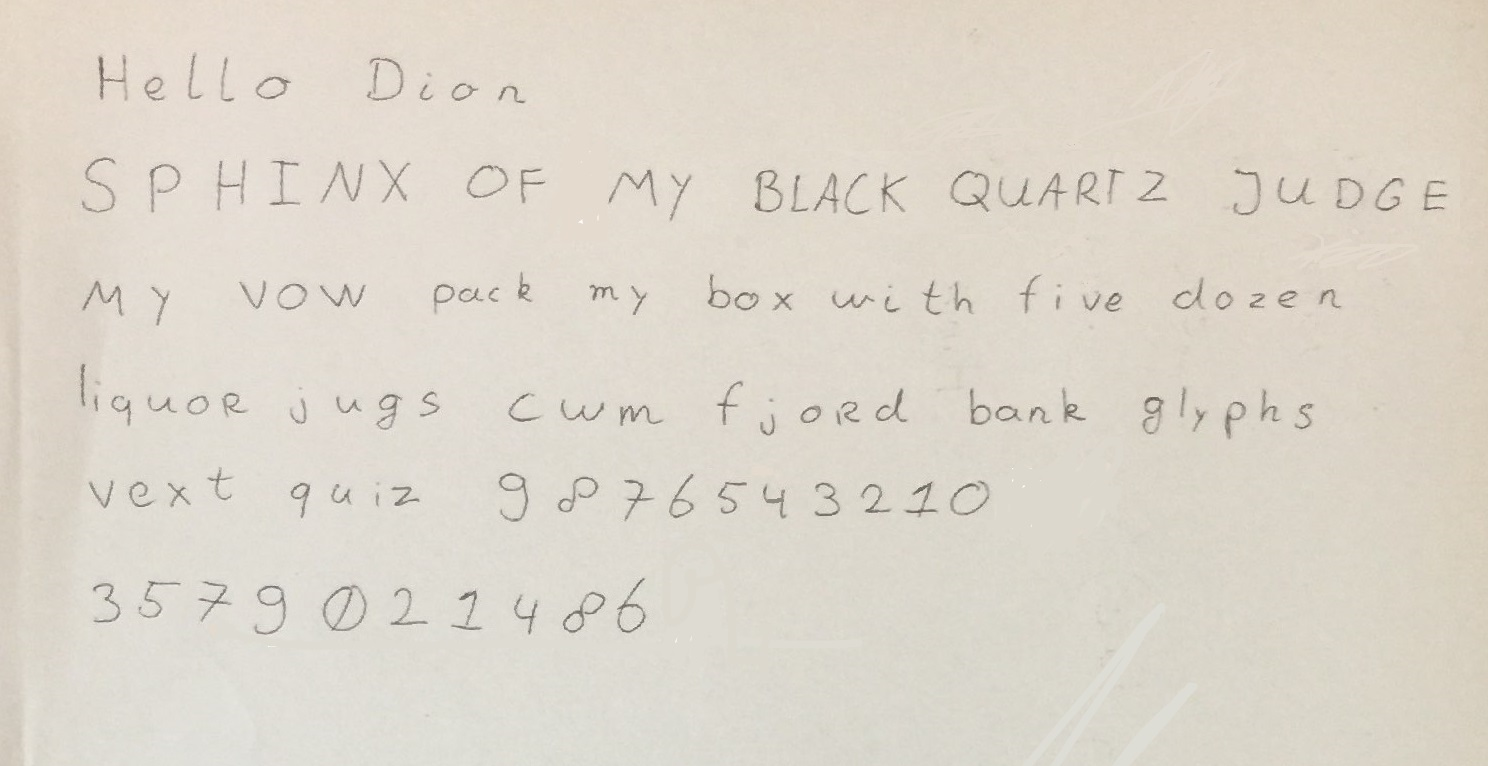 Hello Dion
SPHINX OF MY BLACK QUARTZ JUDGE
MY VOW pack my box with five dozen
liquoR jugs cwm fjoRd bank glyphs
vext quiz 9876543210
3579021486